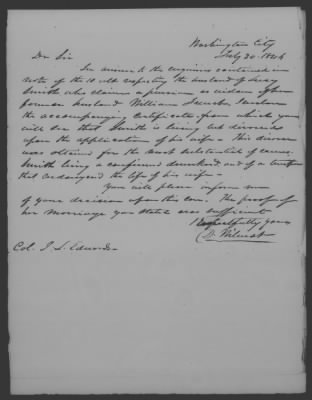 Washington City
July 20. 1846
Dr Sir
In answer to the enquiries contained in
note of the 10 ult respecting the husband of Lucy
Smith who claims a pension as widow of her
former husband William I enclose
the accompanying Certificates from which you
will see that Smith is living but divorced
upon the application of his wife - This divorce
was obtained for the most substantial of causes.
Smith being a confirmed drunkard and of a temper
that endangered the life of his wife -
You will please inform me
of your decision upon this case. The proof of
her Marriage you stated was sufficient
Respectfully yours
D. Wilmot
Col. J L. Edwards